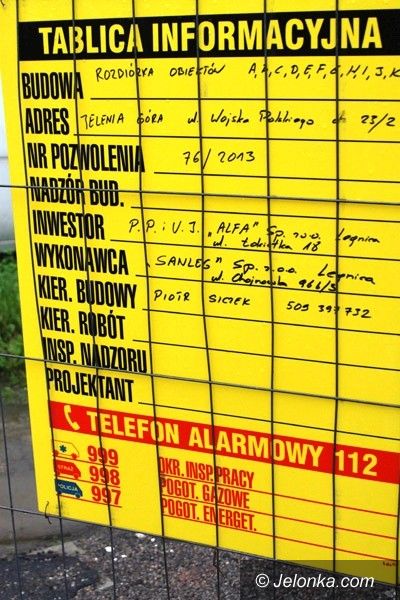 TABLICA INFORMACYJNA
BUDOWA ROZBIÓRKA OBIEKTÓW A,B,C,D,E,F,G,H,I,J,K
ADRES JELENIA GÓRA ul. Wojska Polskiego 23/2
NR POZWOLENIA 76/2013
NADZÓR BUD.
INWESTOR P.P.i U.J. „ALFA" Sp. z o.o. Legnica
ul. Łokietka 18
WYKONAWCA „SANLEG" Sp. z o.o. Legnica
ul. Chojnowska
KIER. BUDOWY PIOTR 509 397 732
KIER. ROBÓT
INSP. NADZORU
PROJEKTANT
TELEFON ALARMOWY 112
999
STRAŻ 998
POLICJA 997
OKR. INSP. PRACY
POGOT. GAZOWE
POGOT. ENERGET.
© Jelonka.com